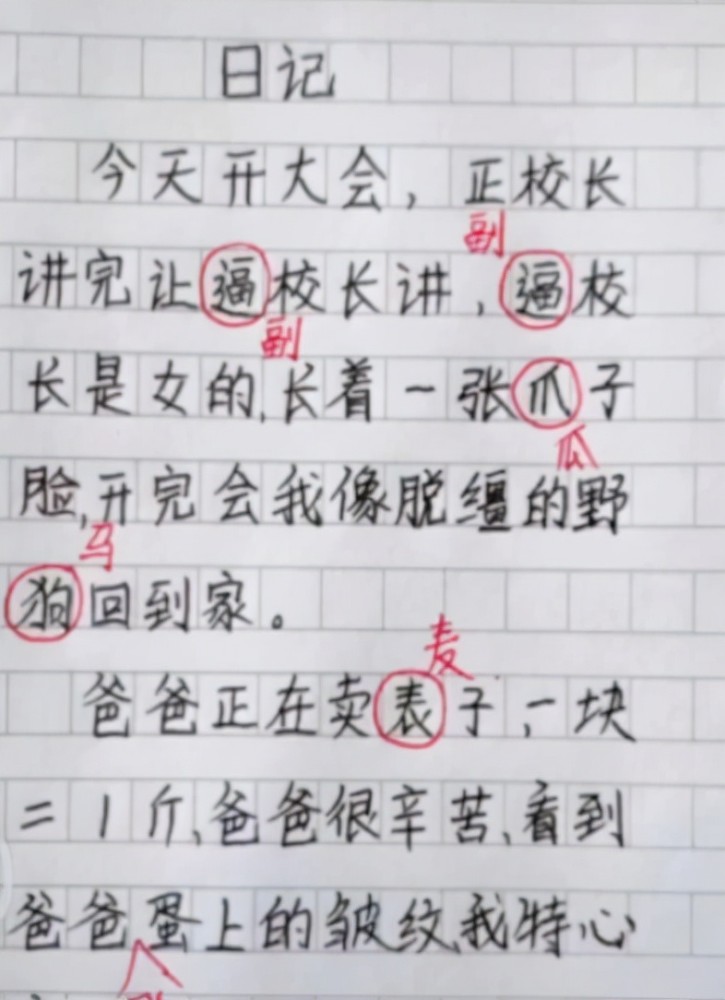 日记
今天开大会，正校长
副
讲完让逼校长讲，逼校
副
长是女的,长着一张爪子
瓜
脸,开完会我像脱缰的野
马
狗回到家。
麦
爸爸正在卖表子,一块
二1斤,爸爸很辛苦,看到
爸爸蛋上的皱纹,我特心